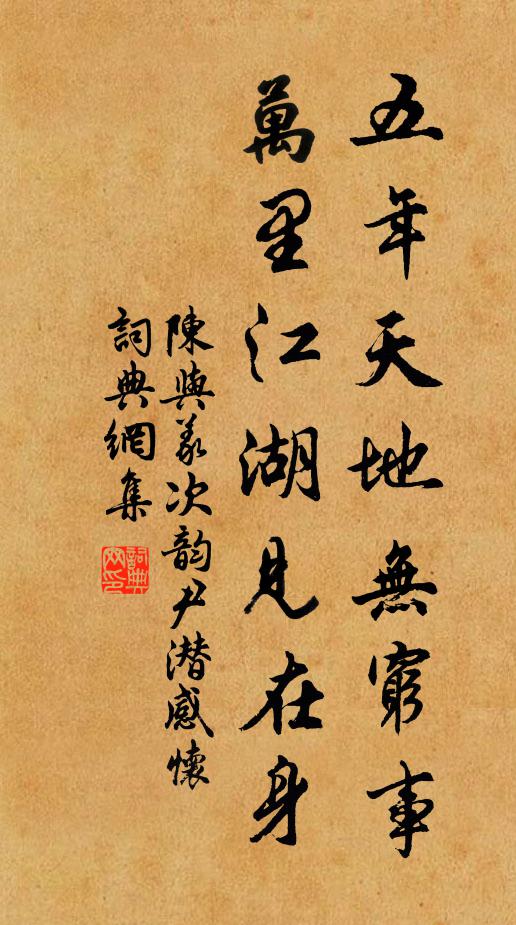 五年天地無窮事
萬里江湖見在身
陳與義次韵尹潜感懷
詞典網集
詞典网印